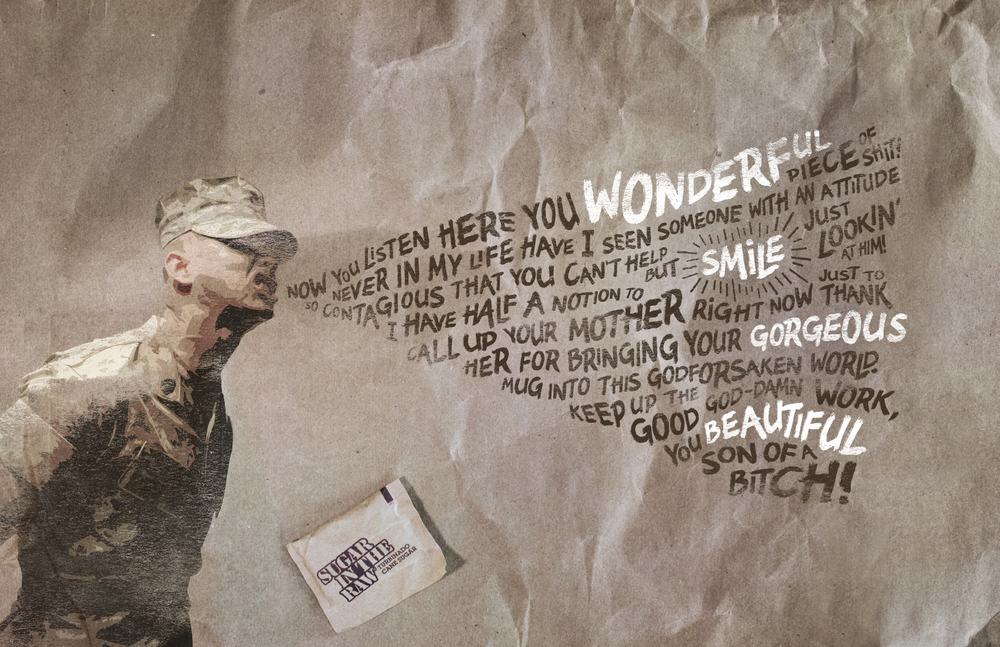 NOW YOU LISTEN HERE YOU WONDERFUL PIECE OF SHIT!
NEVER IN MY LIFE HAVE I SEEN SOMEONE WITH AN ATTITUDE
SO CONTAGIOUS THAT YOU CAN'T HELP BUT SMILE JUST LOOKIN' AT HIM!
I HAVE HALF A NOTION TO
CALL UP YOUR MOTHER RIGHT NOW JUST TO THANK
HER FOR BRINGING YOUR GORGEOUS
MUG INTO THIS GODFORSAKEN WORLD.
KEEP UP THE GOD-DAMN
GOOD WORK,
YOU BEAUTIFUL
SON OF A
BITCH!
SUGAR
IN THE
RAW
TURBINADO
CANE SUGAR